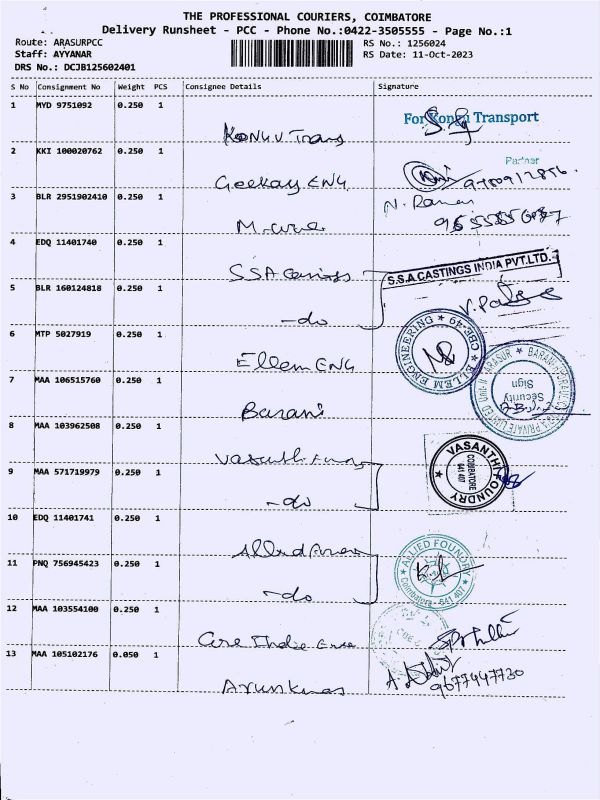 THE PROFESSIONAL COURIERS, COIMBATORE
Delivery Runsheet - PCC - Phone No.:0422-3505555 - Page No.:1
Route: ARASURPCC RS No.: 1256024
Staff: AYYANAR RS Date: 11-Oct-2023
DRS No.: DCJB125602401
S No Consignment No Weight PCS Consignee Details Signature
1 MYD 9751092 0.250 1
For Kongu Transport
Kongu Trans
2 KKI 100020762 0.250 1
Partner
Geekay ENG
3 BLR 2951902410 0.250 1
N. Raman
4 EDQ 11401740 0.250 1
SSA Castings
S.S.A.CASTINGS INDIA PVT.LTD.
5 BLR 160124818 0.250 1
-do
6 MTP 5027919 0.250 1
Ellem ENG
ELLEM ENGINEERING * CBE-49 *
7 MAA 106515760 0.250 1
Barani
Security
Sign
8 MAA 103962508 0.250 1
VASANTHI FOUNDRY
COIMBATORE
641 407
9 MAA 571719979 0.250 1
-do
10 EDQ 11401741 0.250 1
ALLIED FOUNDRY
Coimbatore - 641 407
11 PNQ 756945423 0.250 1
-do
12 MAA 103554100 0.250 1
13 MAA 105102176 0.050 1
9677447730
Arunkumar